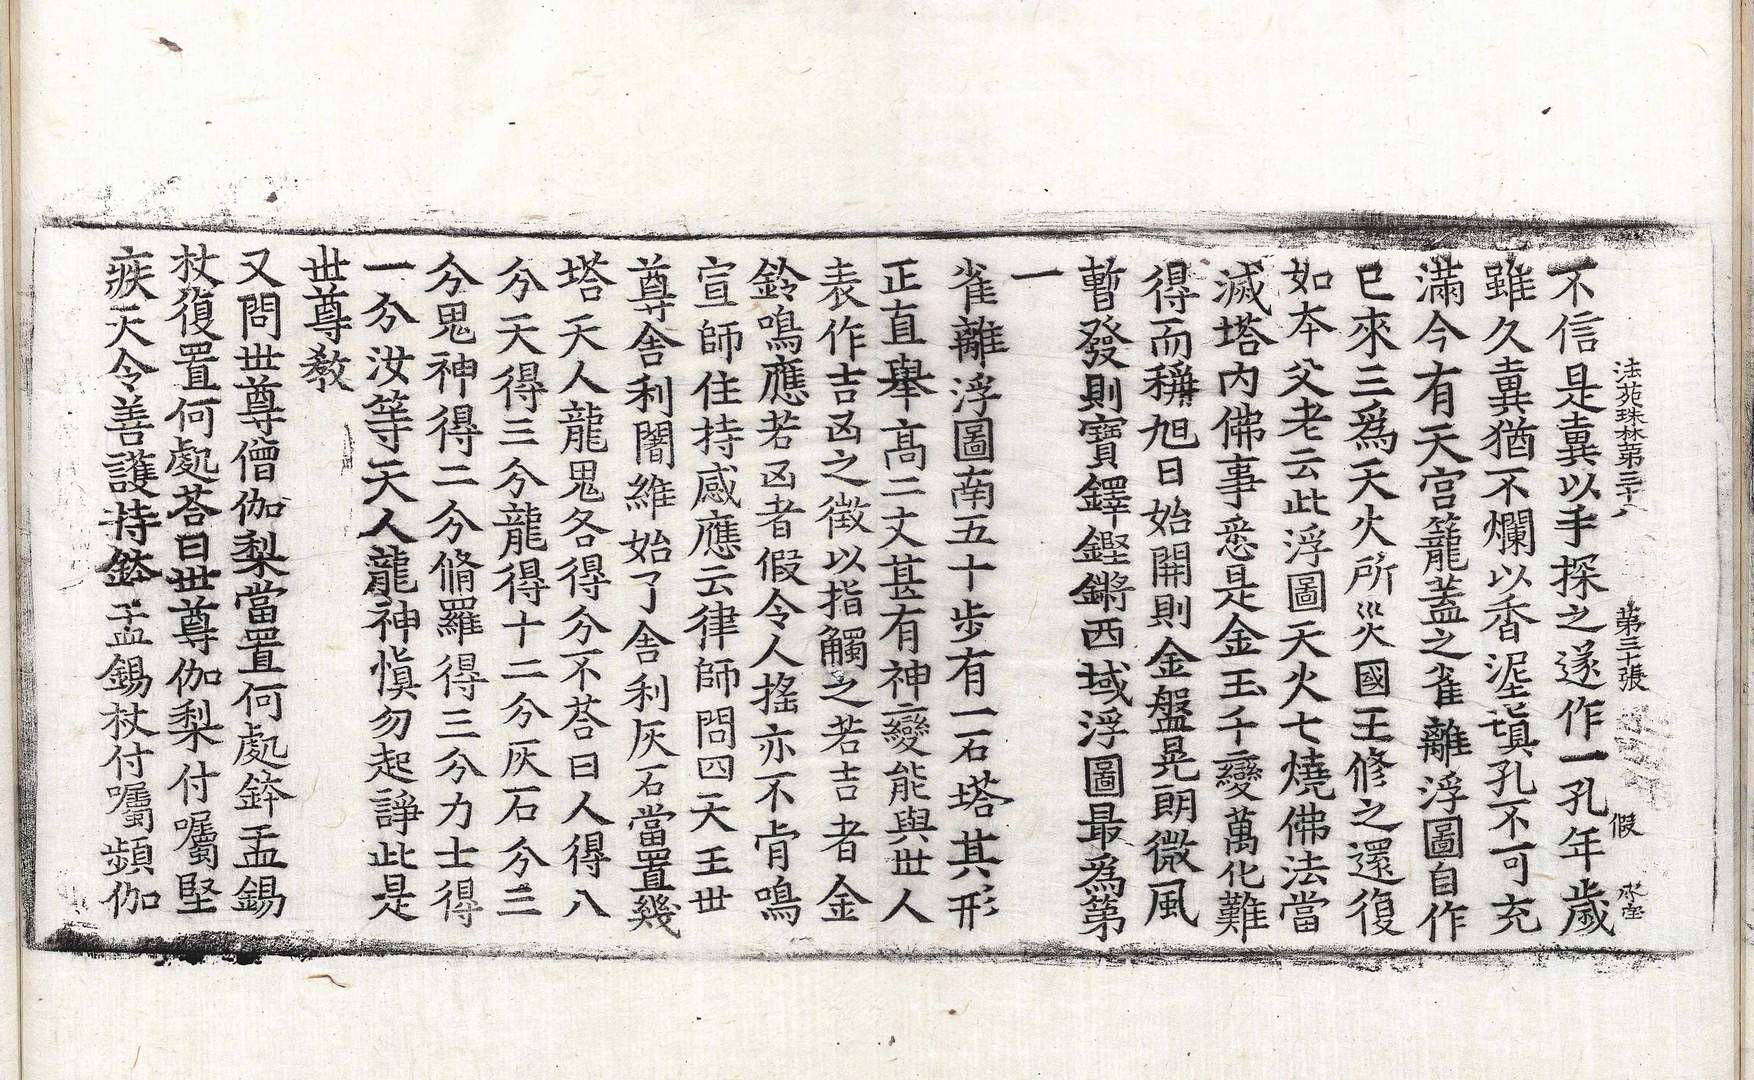 法苑珠林第三十八 第三十張 假
不信是糞以手探之遂作一孔年歲
雖久糞猶不爛以香泥填孔不可充
滿今有天宮籠蓋之雀離浮圖自作
已來三爲天火所災國王修之還復
如本父老云此浮圖天火七燒佛法當
滅塔内佛事悉是金玉千變萬化難
得而稱旭日始開則金盤晃朗微風
暫發則寶鐸鏗鏘西域浮圖最為第
一
雀離浮圖南五十步有一石塔其形
正直舉高二丈甚有神變能與世人
表作吉凶之徵以指觸之若吉者金
鈴鳴應若凶者假令人搖亦不肯鳴
宣師住持感應云律師問四天王世
尊舍利闍維始了舍利灰石當置幾
塔天人龍鬼各得分不荅曰人得八
分天得三分龍得十二分灰石分三
分鬼神得二分脩羅得三分力士得
一分汝等天人龍神愼勿起諍此是
世尊教
又問世尊僧伽梨當置何處鉢盂錫
杖復置何處荅曰世尊伽梨付囑堅
疾天令善護持鉢盂錫杖付囑頻伽